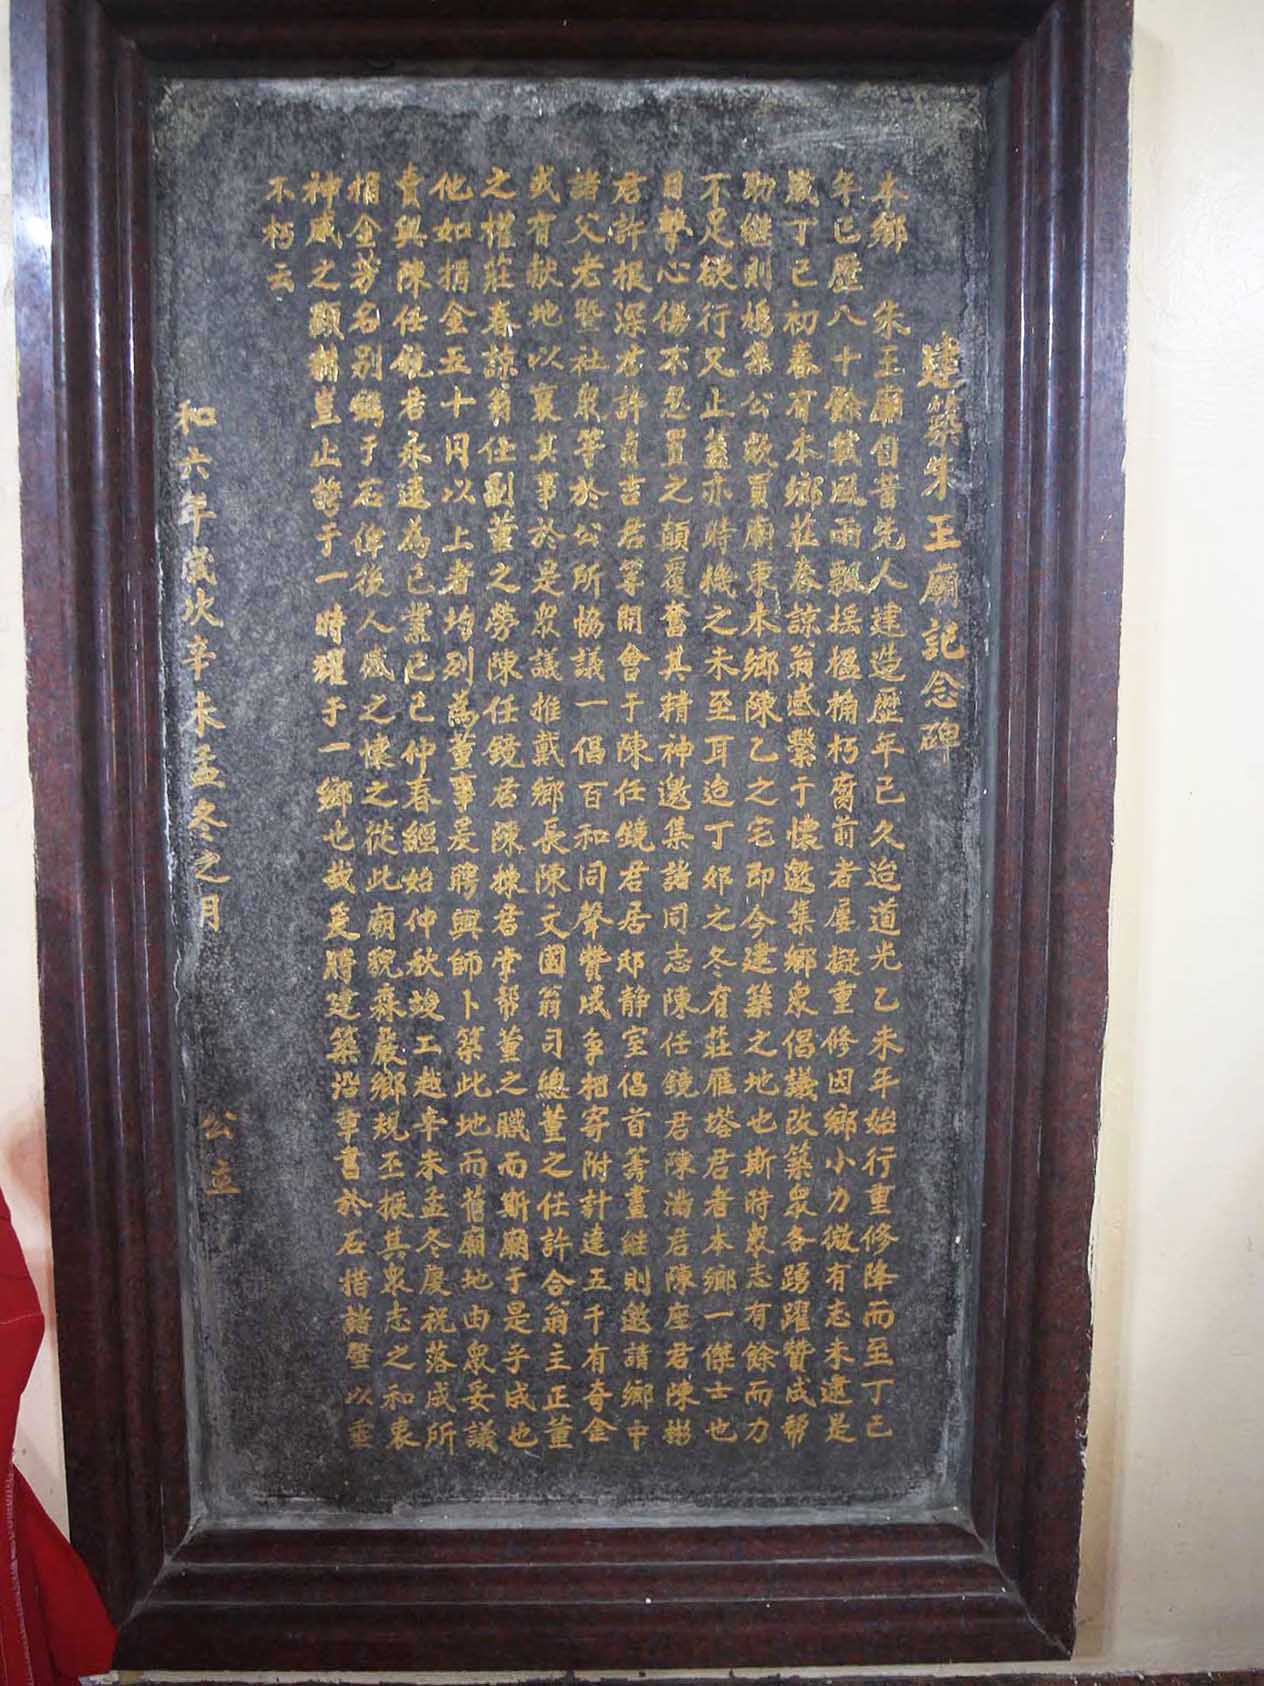 建築朱王廟記念碑
本鄉　朱王廟自昔先人建造歷年已久迨道光乙未年始行重修降而至丁巳
年已歷八十餘載風雨飄搖楹桷朽腐前者屢擬重修因鄉小力微有志未逮是
歲丁巳初春有本鄉莊春諒翁感繫于懷邀集鄉眾倡議改築眾各踴躍贊成幇
助繼則鳩集公款買廟東本鄉陳乙之宅即今建築之地也斯時製志有餘而力
不足欲行又止蓋亦時機之未至耳迨丁卯之冬有莊雁塔君者本鄉一傑士也
目擊心傷不忍置之顛覆奮其精神邀集諸同志陳任鏡君陳滿君陳座君陳彬
君許根深君許貞吉君等開會于陳任鏡君居邸靜室倡首籌畫繼則邀請鄉中
諸父老暨社眾等於公所協議一倡百和同聲贊成爭相寄附計達五千有奇金
或有獻地以襄其事於是眾議推戴鄉長陳文國翁司總董之任許合翁主正董
之權莊春諒翁任副董之勞陳任鏡君陳棟君掌幇董之職而斯廟于是乎成也
他如捐金五十円以上者均列為董事爰聘興師卜築此地而舊廟地由眾妥議
賣與陳任鏡君永遠為己業己巳仲春經始仲秋竣工越辛未孟冬慶祝落成所
捐金芳名別鐫于石俾後人感之懷之從此廟貌森嚴鄉規丕振其眾志之和衷
神威之顯耕豈止誇于一時耀于一鄉也哉爰將建築沿革書於石措諸壁以垂
不朽云
和六年歲次辛未孟冬之月　公立